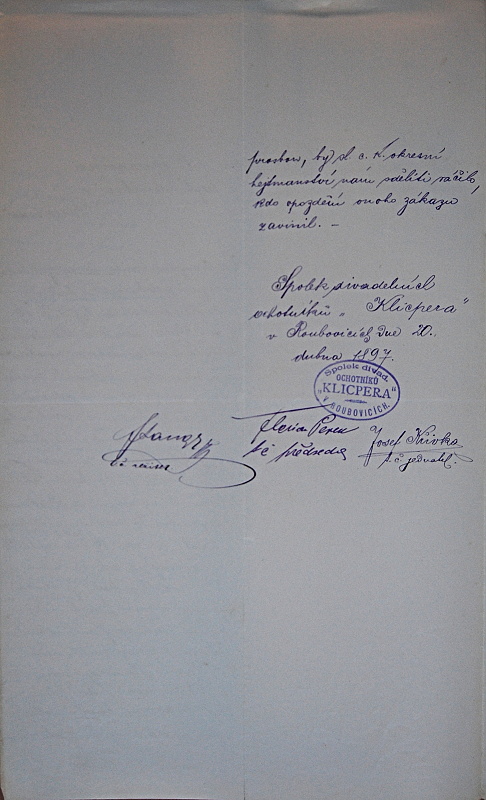 prosbou, by sl. c. k. okresní
hejtmanství nám sděliti ráčilo,
kdo opozdění onoho zákazu
zavinil. —
Spolek divadelních
ochotníků „Klicpera"
v Roubovicích dne 20.
dubna 1897.
Spolek divad.
OCHOTNÍKŮ
„KLICPERA"
V ROUBOVICÍCH.
t č předseda
Josef Křivka
t. č. jednatel.